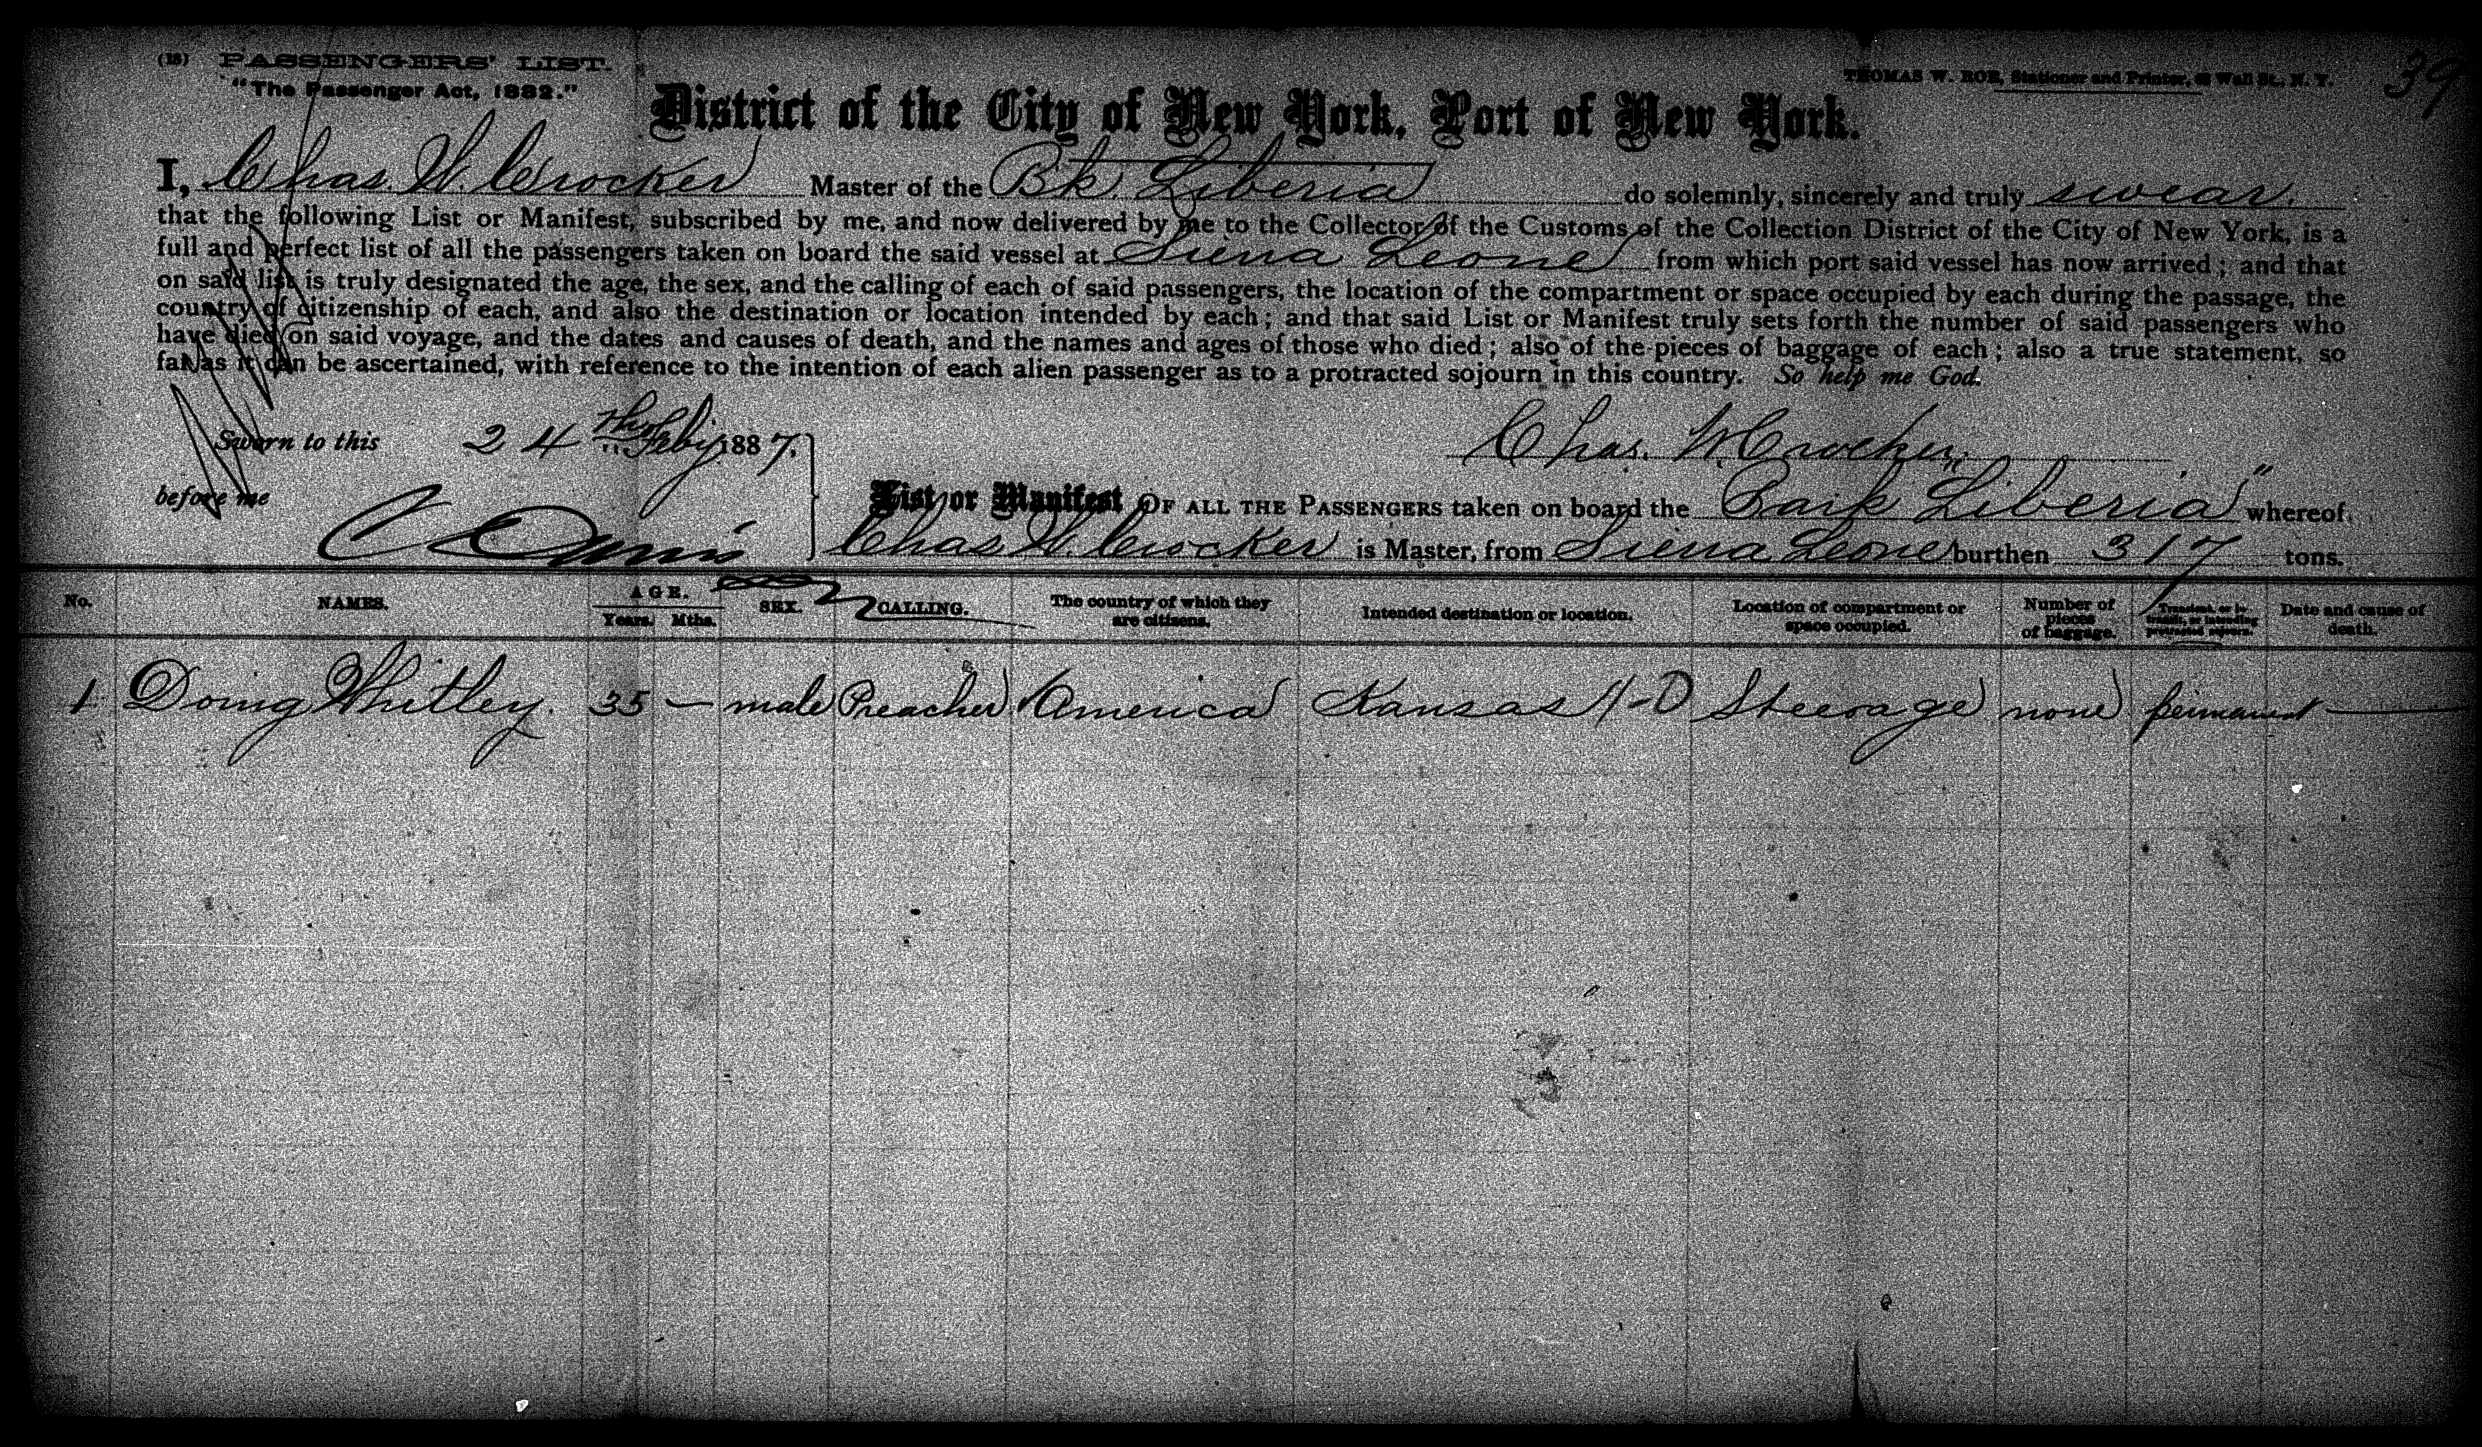 (18) PASSENGERS' LIST.
"The Passenger Act, 1882."
THOMAS W. ROE, Stationer and Printer, Wall St., N. Y.
39
District of the City of New York, Port of New York.
I, Chas. W. Crocker Master of the Bk. Liberia do solemnly, sincerely and truly swear.
that the following List or Manifest, subscribed by me, and now delivered by me to the Collector of the Customs of the Collection District of the City of New York, is a
full and perfect list of all the passengers taken on board the said vessel at Sierra Leone from which port said vessel has now arrived; and that
on said list is truly designated the age, the sex, and the calling of each of said passengers, the location of the compartment or space occupied by each during the passage, the
country of citizenship of each, and also the destination or location intended by each; and that said List or Manifest truly sets forth the number of said passengers who
have died on said voyage, and the dates and causes of death, and the names and ages of those who died; also of the pieces of baggage of each; also a true statement, so
far as it can be ascertained, with reference to the intention of each alien passenger as to a protracted sojourn in this country. So help me God.
Sworn to this 24th Feby 1887.
Chas. W. Crocker
before me
List or Manifest OF ALL THE PASSENGERS taken on board the Bark Liberia" whereof
Chas W. Crocker is Master, from Sierra Leone burthen 317 tons.
No. NAMES. AGE. Years. Mths. SEX. CALLING. The country of which they are citizens. Intended destination or location. Location of compartment or space occupied. Number of pieces of baggage. Transient, or in transit, or intending protracted sojourn. Date and cause of death.
1 Doing Whitley. 35 — male Preacher America Kansas Steerage none permanent —